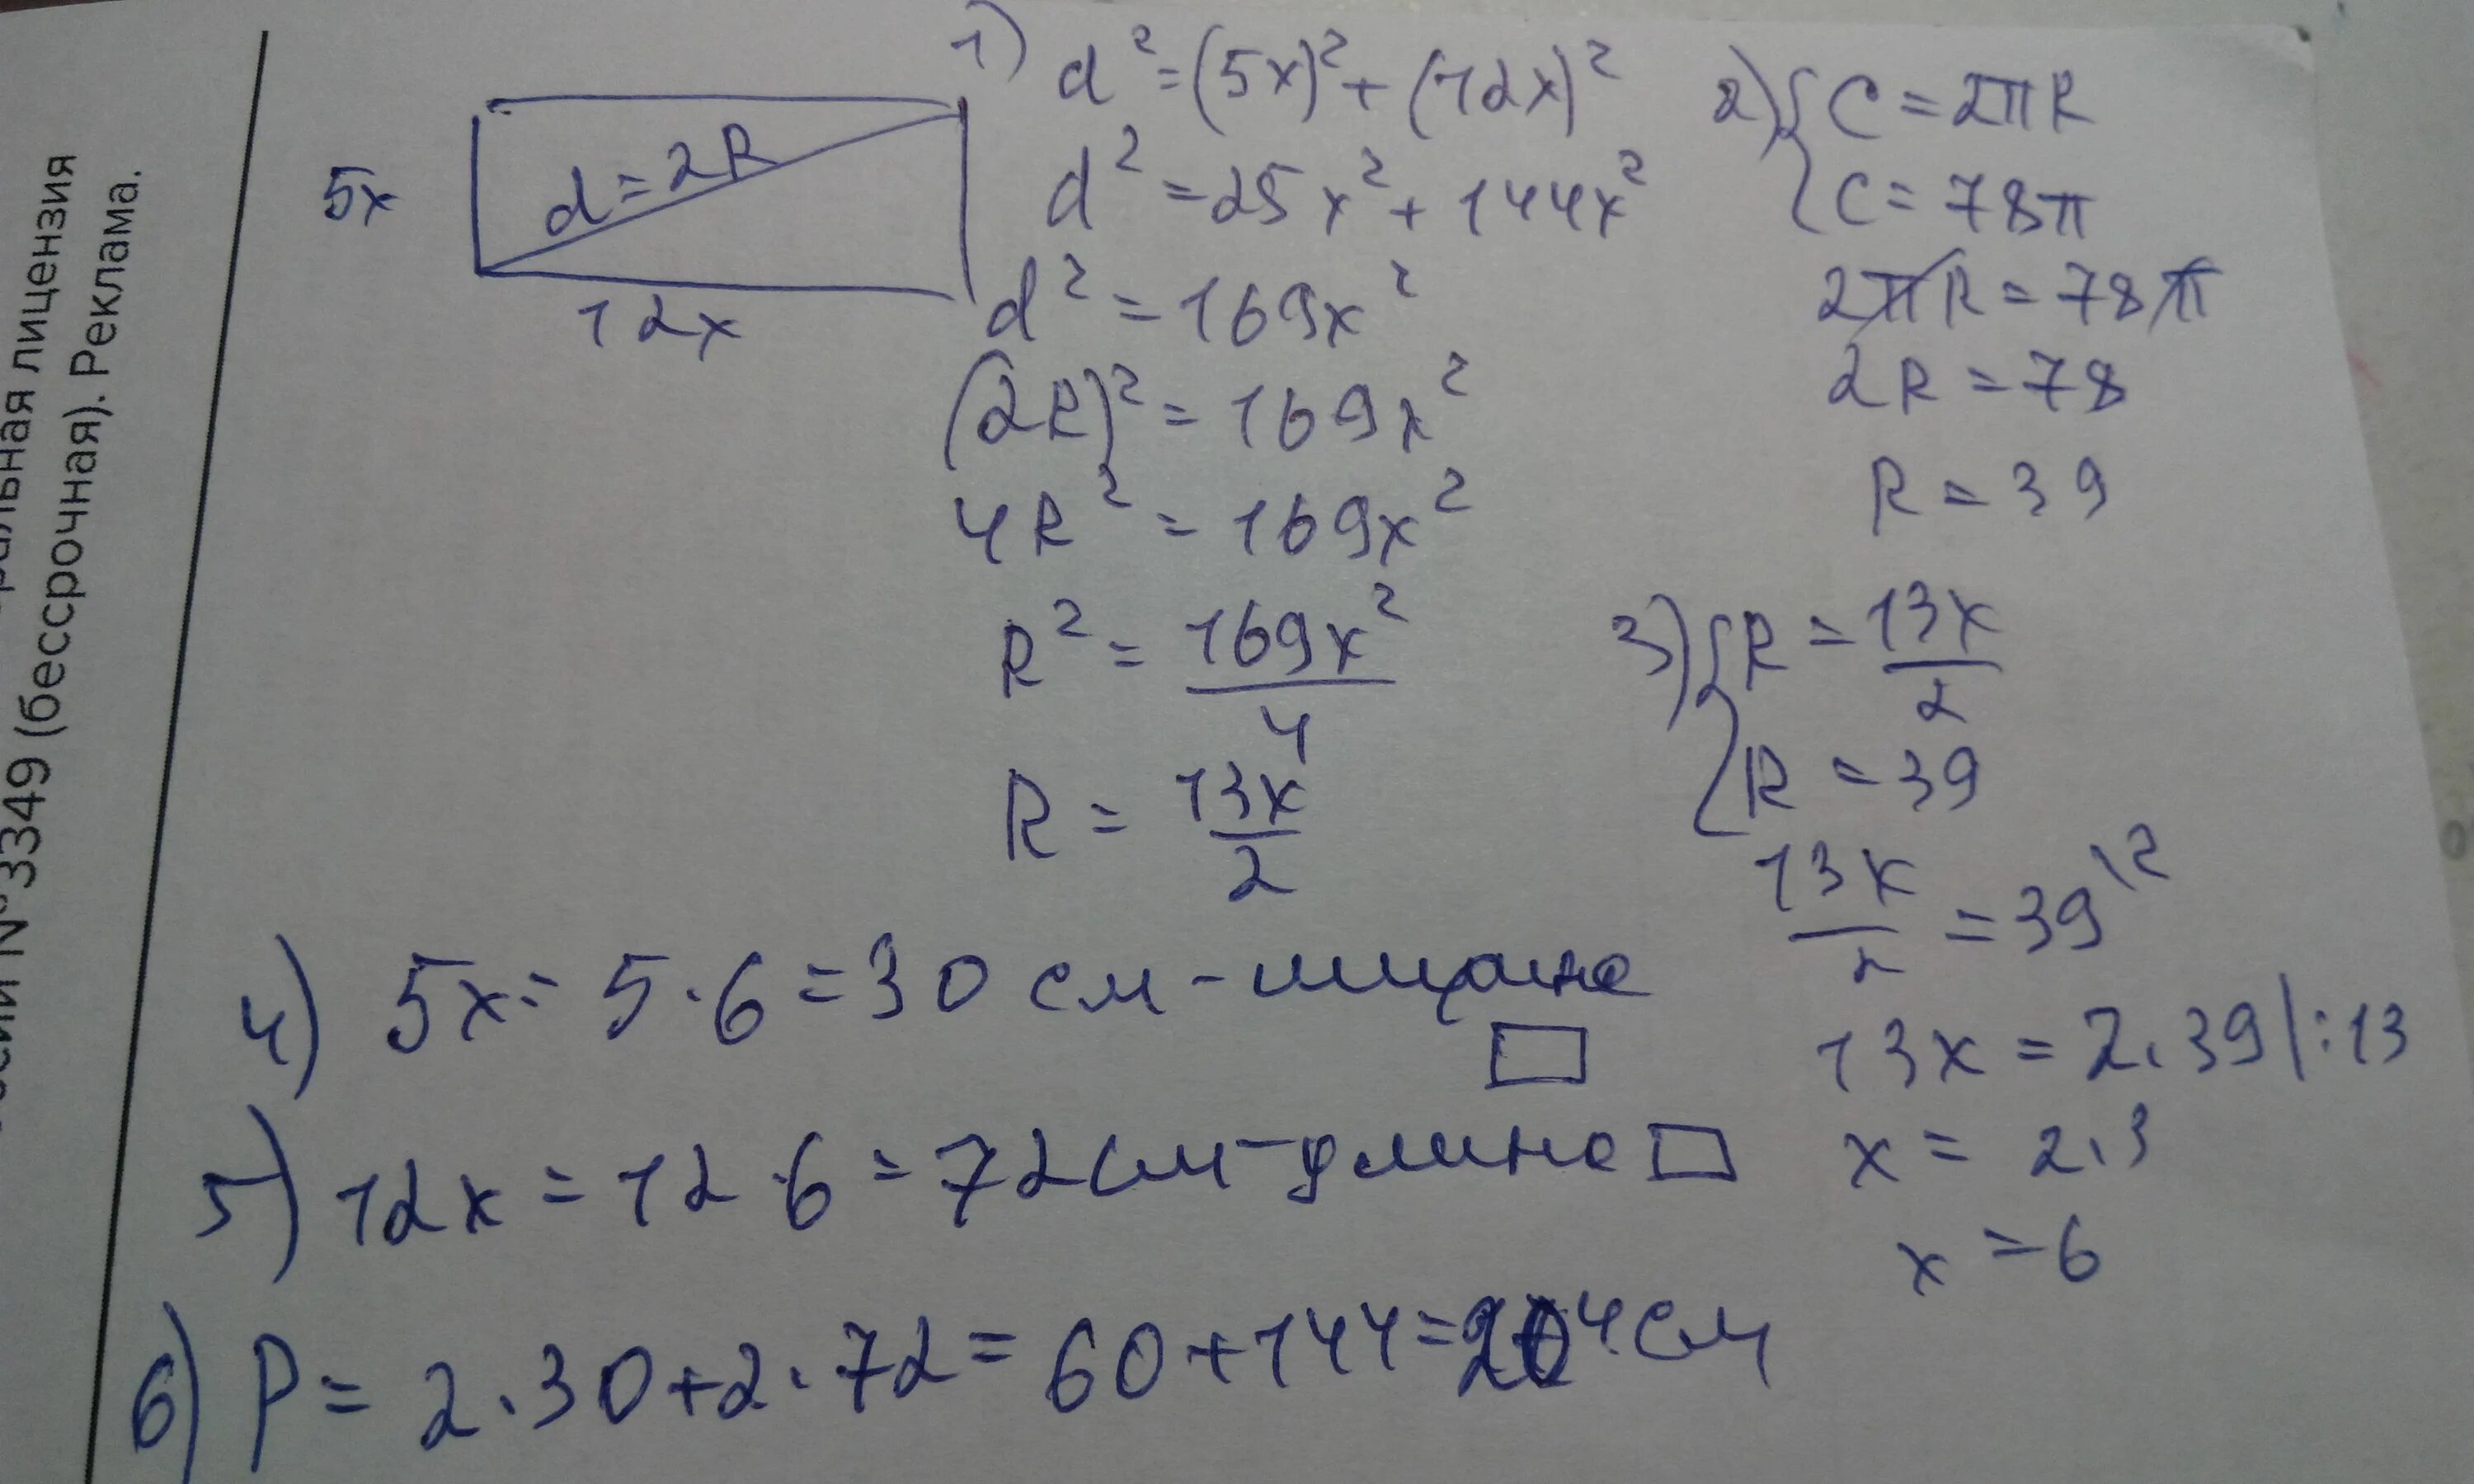 ...альная лицензия
...сии №3349 (бессрочная). Реклама.
5x
d=2R
12x
1) d²=(5x)²+(12x)²
d²=25x²+144x²
d²=169x²
(2R)²=169x²
4R²=169x²
R²=169x²/4
R=13x/2
2) { C=2πR
C=78π
2πR=78π
2R=78
R=39
3) { R=13x/2
R=39
13x/2=39 |2
13x=2·39 |:13
x=2·3
x=6
4) 5x=5·6=30 см - ширина ▭
5) 12x=12·6=72 см - длина ▭
6) P=2·30+2·72=60+144=204 см